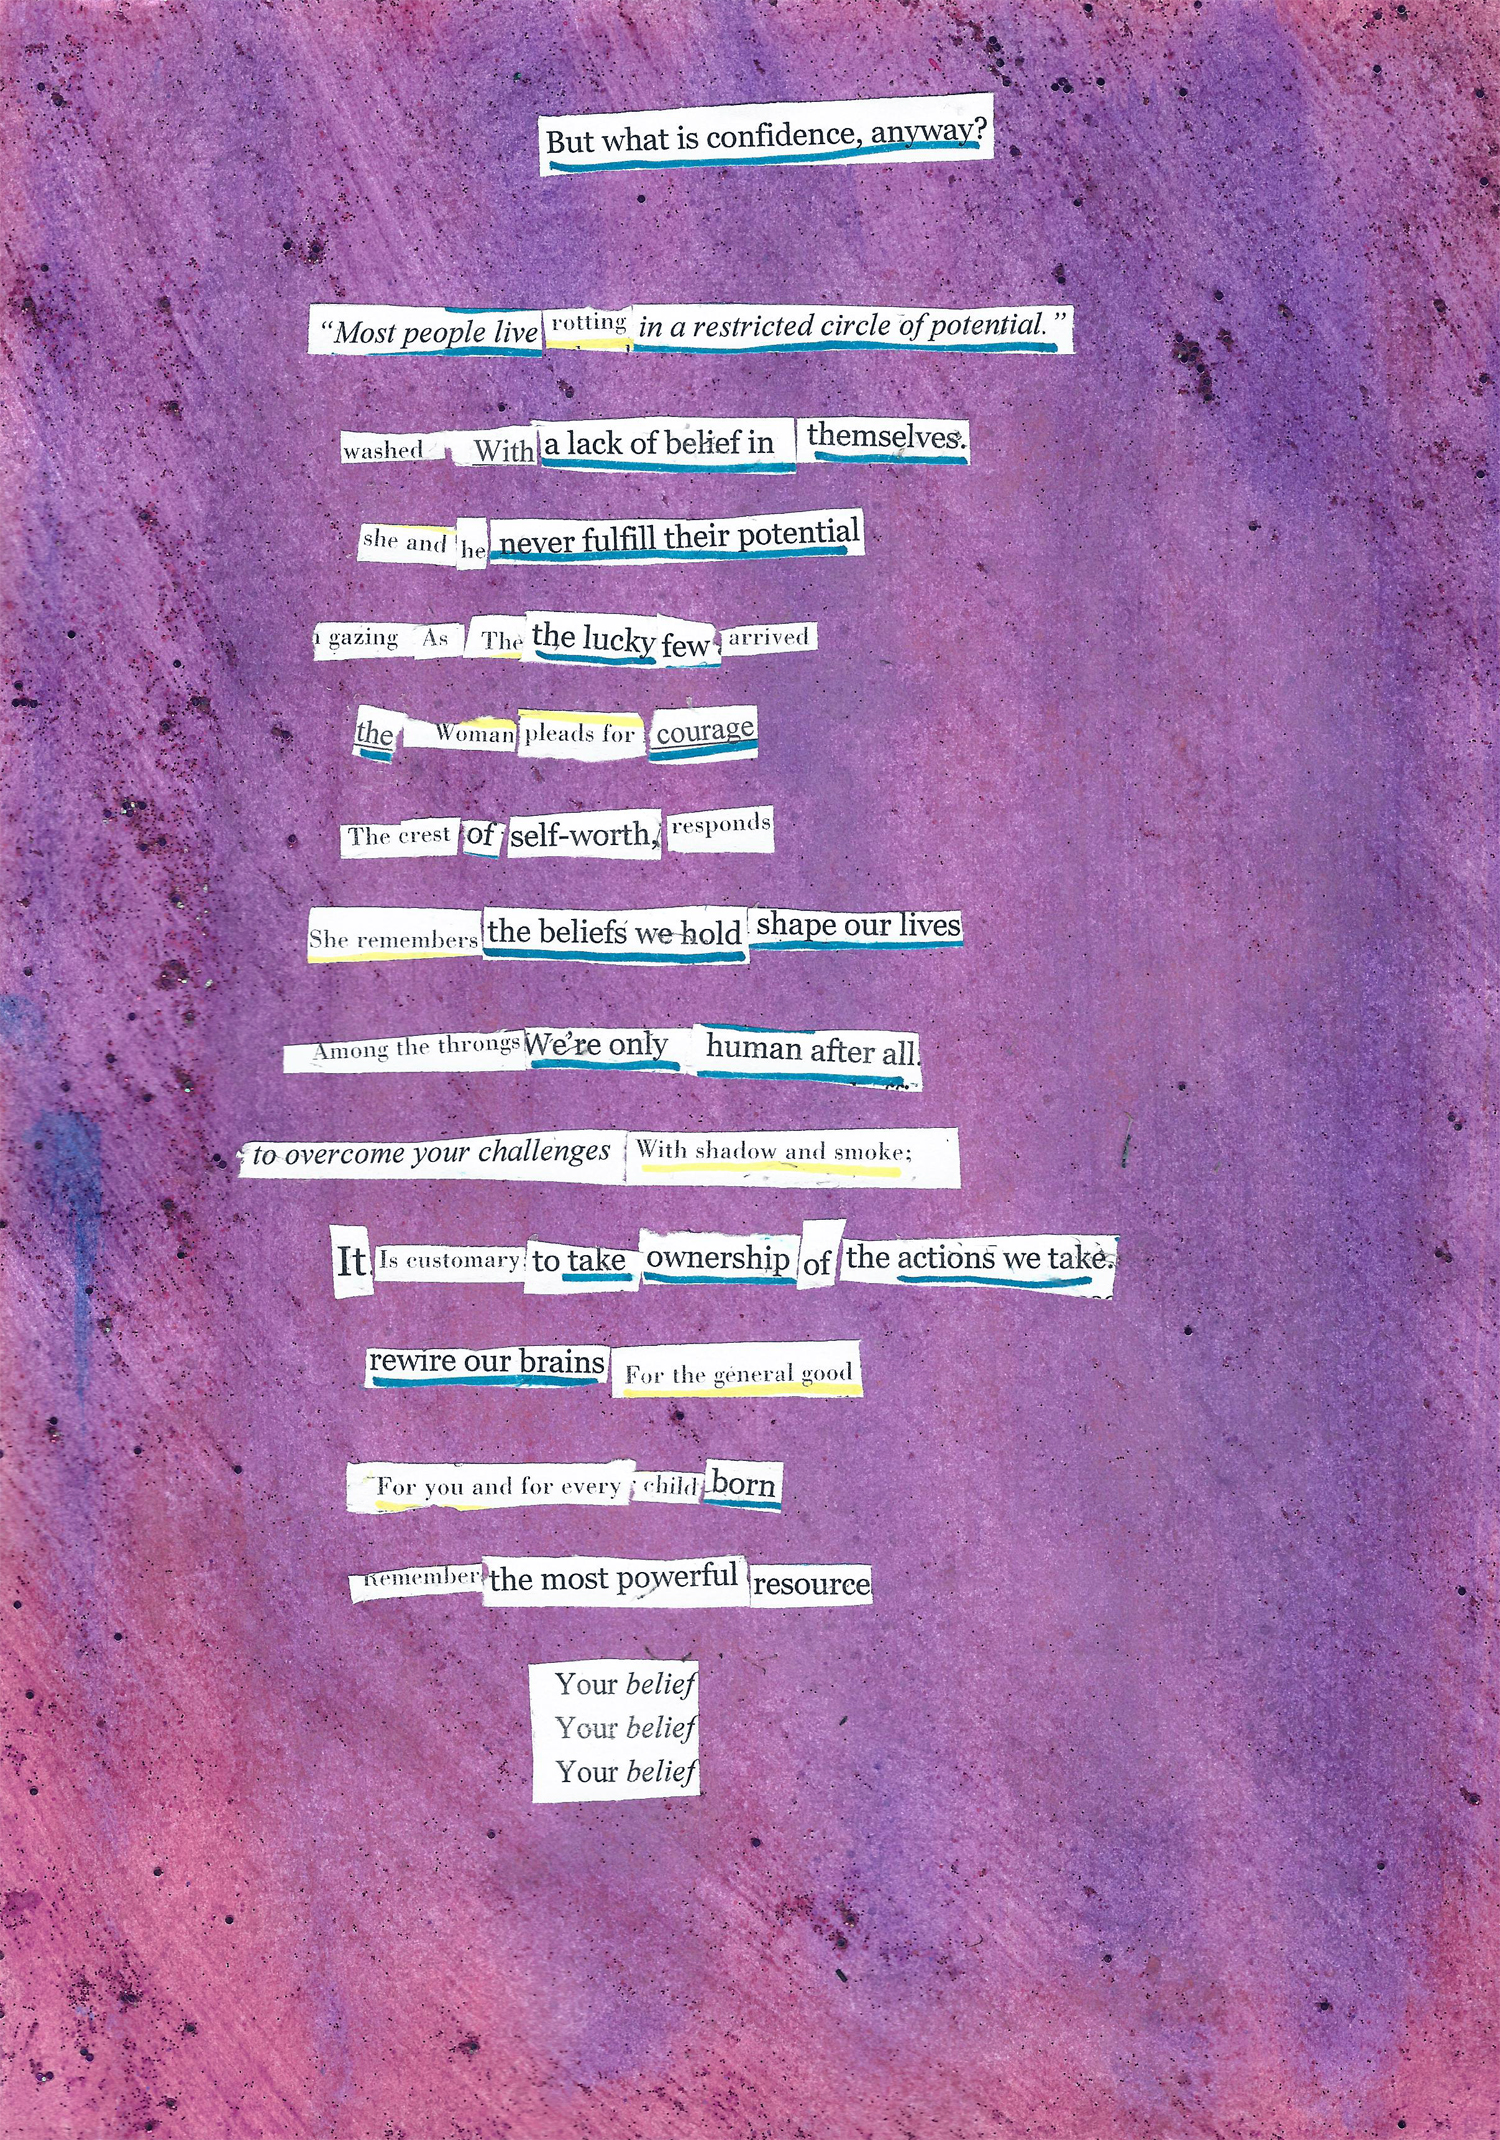 But what is confidence, anyway?
“Most people live rotting in a restricted circle of potential.”
washed With a lack of belief in themselves.
she and he never fulfill their potential
gazing As The the lucky few arrived
the Woman pleads for courage
The crest of self-worth, responds
She remembers the beliefs we hold shape our lives
Among the throngs We’re only human after all.
to overcome your challenges With shadow and smoke;
It Is customary to take ownership of the actions we take.
rewire our brains For the general good
For you and for every child born
Remember the most powerful resource
Your belief
Your belief
Your belief